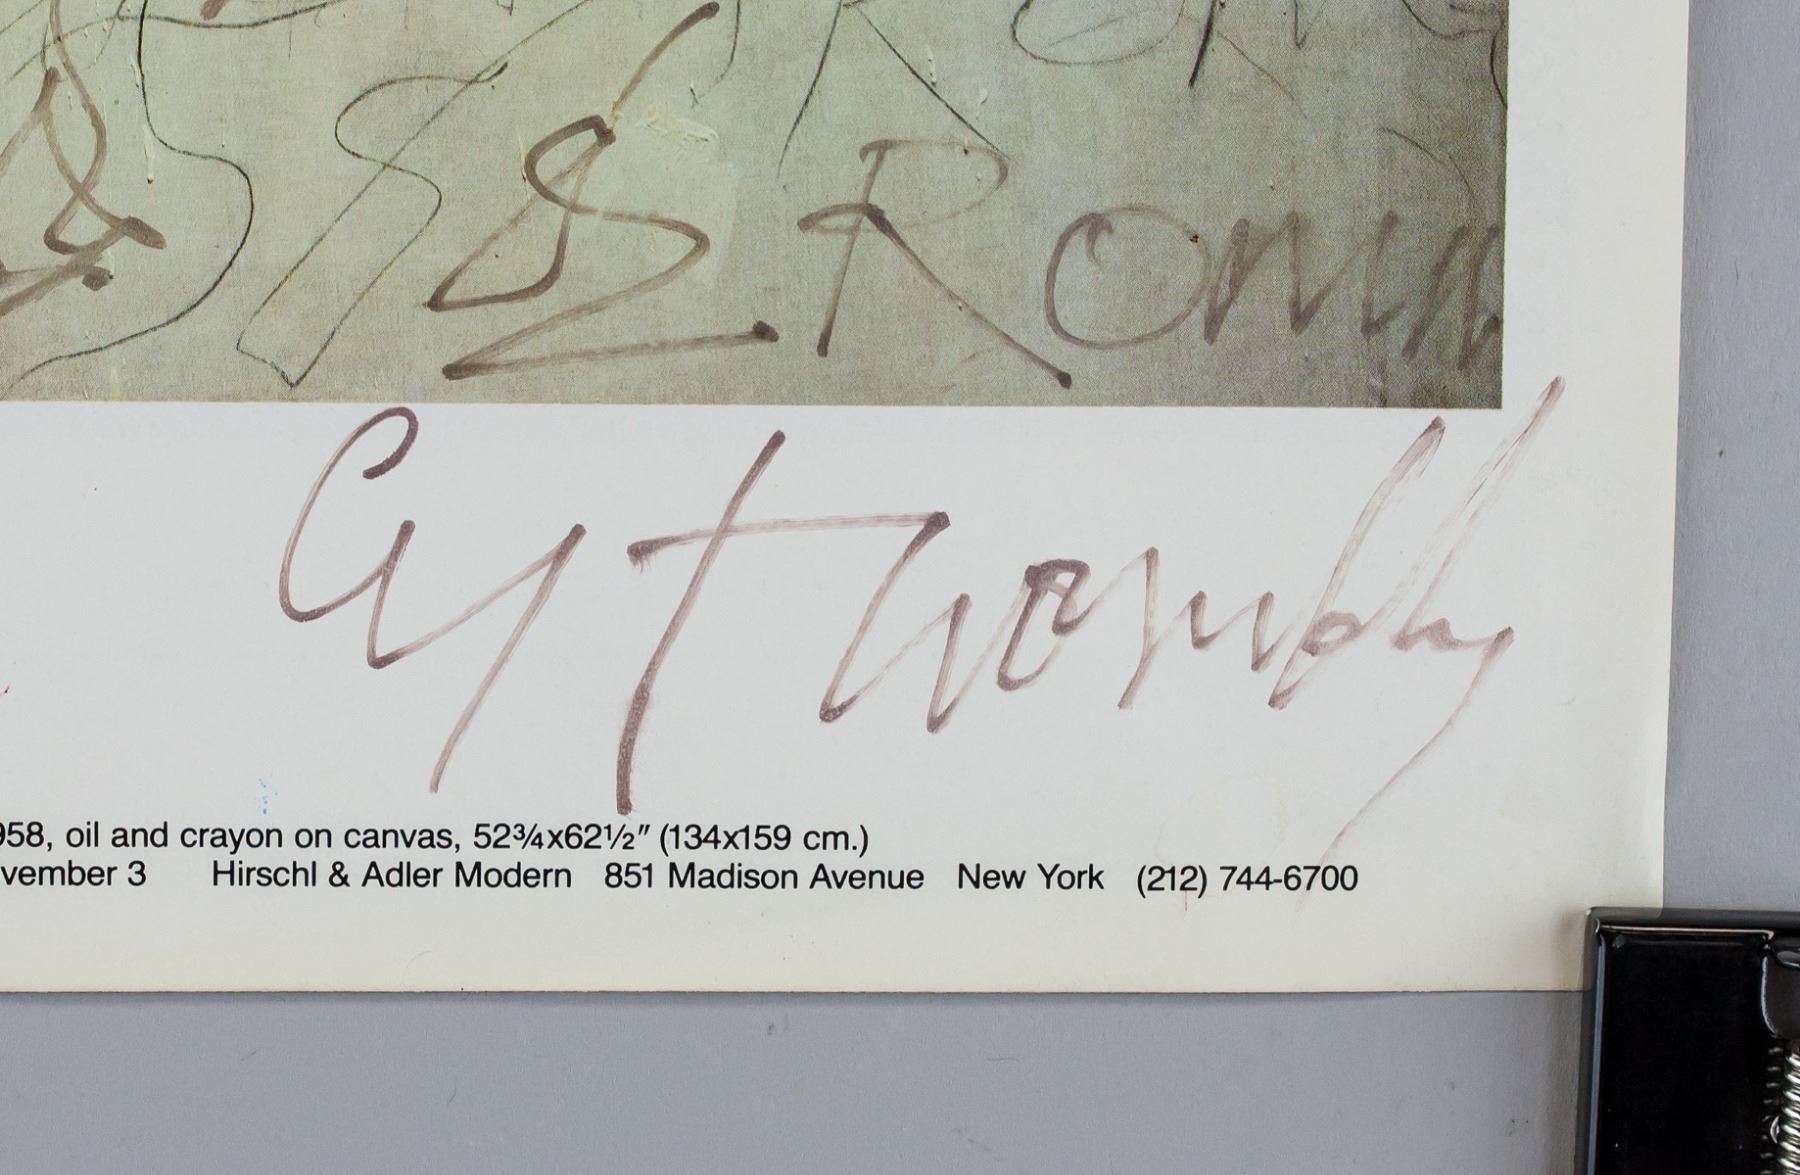 & Roma
Cy Twombly
958, oil and crayon on canvas, 52¾x62½″ (134x159 cm.)
vember 3 Hirschl & Adler Modern 851 Madison Avenue New York (212) 744-6700